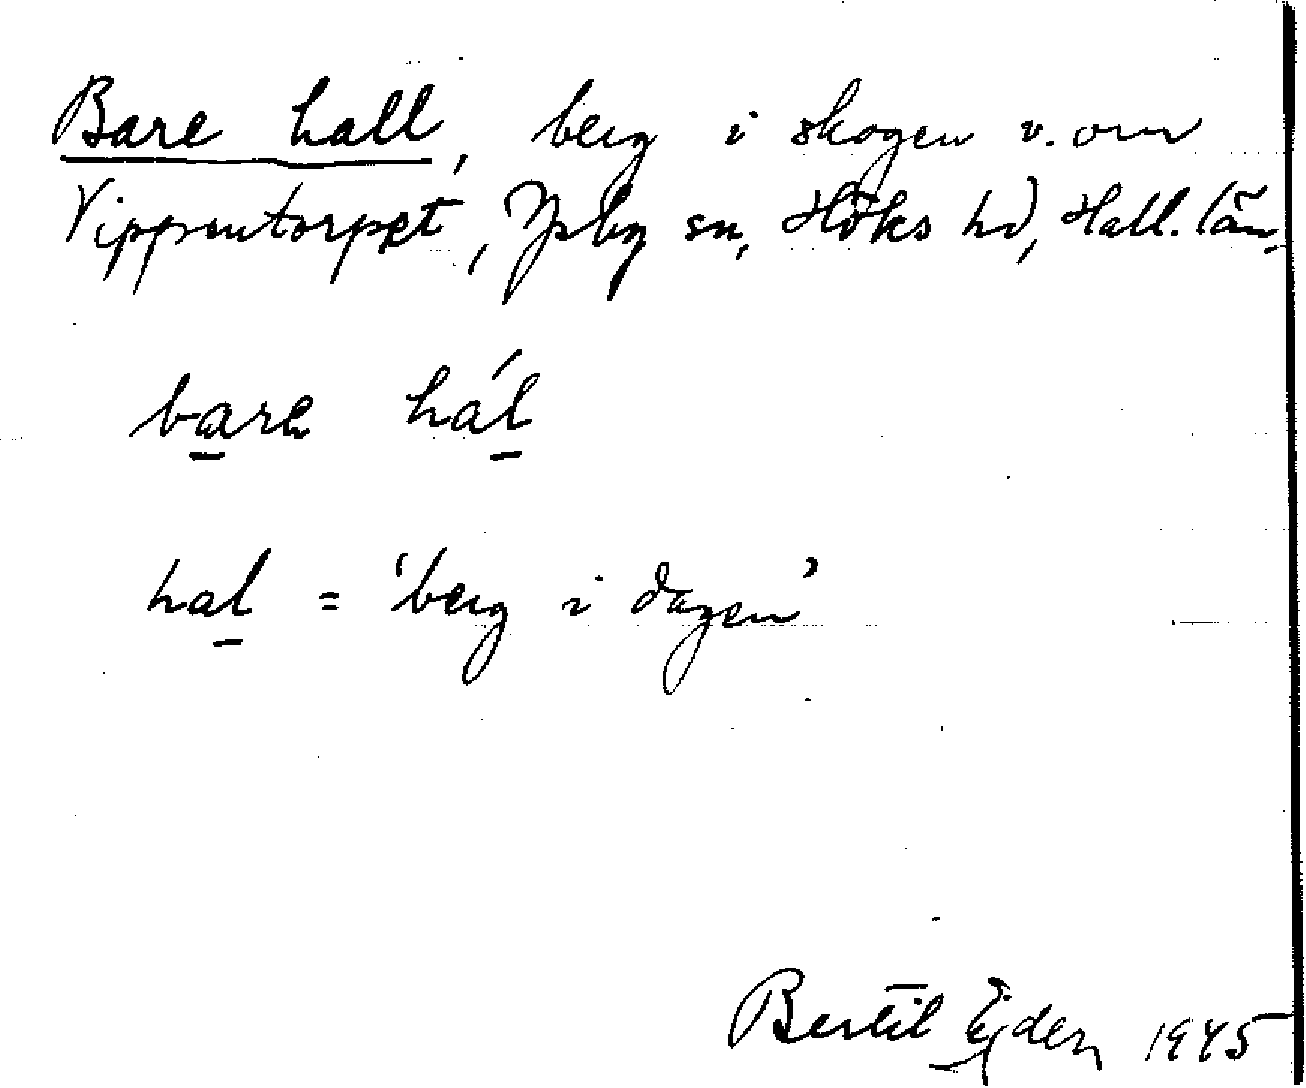 Bare hall, berg i skogen v. om
Vippentorpet, Ysby sn, Höks hd, Hall. län.
bare hál
hal = 'berg i dagen'
Bertil Ejder 1945